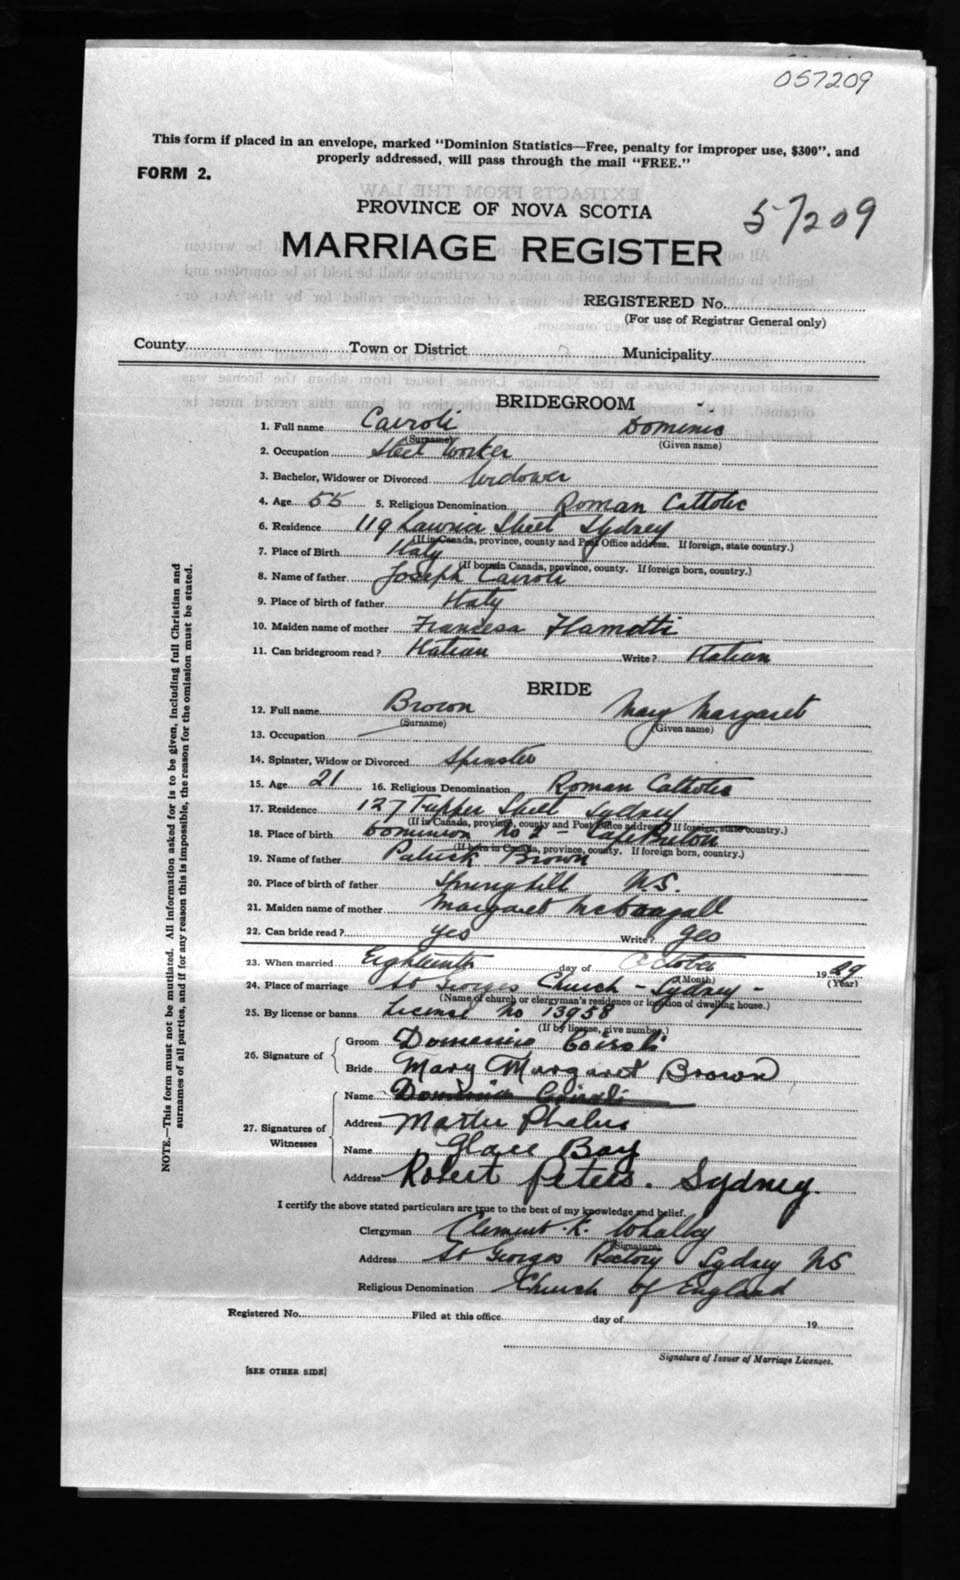 057209
This form if placed in an envelope, marked "Dominion Statistics—Free, penalty for improper use, $300", and
properly addressed, will pass through the mail "FREE."
FORM 2.
PROVINCE OF NOVA SCOTIA
57209
MARRIAGE REGISTER
REGISTERED No.
(For use of Registrar General only)
County Town or District Municipality
BRIDEGROOM
1. Full name Cairoli Dominic
(Surname) (Given name)
2. Occupation Steel Worker
3. Bachelor, Widower or Divorced Widower
4. Age 55 5. Religious Denomination Roman Catholic
6. Residence 119 Street Sydney
(If in Canada, province, county and Post Office address. If foreign, state country.)
7. Place of Birth Italy
(If born in Canada, province, county. If foreign born, country.)
8. Name of father Joseph Cairoli
9. Place of birth of father Italy
10. Maiden name of mother Francesa
11. Can bridegroom read? Italian Write? Italian
BRIDE
12. Full name Brown Mary Margaret
(Surname) (Given name)
13. Occupation —
14. Spinster, Widow or Divorced Spinster
15. Age 21 16. Religious Denomination Roman Catholic
17. Residence 127 Tupper Street Sydney
(If in Canada, province, county and Post Office address. If foreign, state country.)
18. Place of birth Dominion No 2 - Cape Breton
(If born in Canada, province, county. If foreign born, country.)
19. Name of father Patrick Brown
20. Place of birth of father Springhill N.S.
21. Maiden name of mother Margaret McDougall
22. Can bride read? yes Write? yes
23. When married Eighteenth day of October 1929
(Month) (Year)
24. Place of marriage St Georges Church - Sydney -
(Name of church or clergyman's residence or location of dwelling house.)
25. By license or banns License No 13958
(If by license, give number.)
26. Signature of
Groom Domenico Cairoli
Bride Mary Margaret Brown
27. Signatures of Witnesses
Name Dominic Cairoli
Address
Name Glace Bay
Address Robert Peters. Sydney.
I certify the above stated particulars are true to the best of my knowledge and belief.
Clergyman Clement K. Whalley
(Signature)
Address St Georges Rectory Sydney NS
Religious Denomination Church of England
Registered No. Filed at this office day of 19
Signature of Issuer of Marriage Licenses.
[SEE OTHER SIDE]
NOTE.—This form must not be mutilated. All information asked for is to be given, including full Christian and
surnames of all parties, and if for any reason this is impossible, the reason for the omission must be stated.